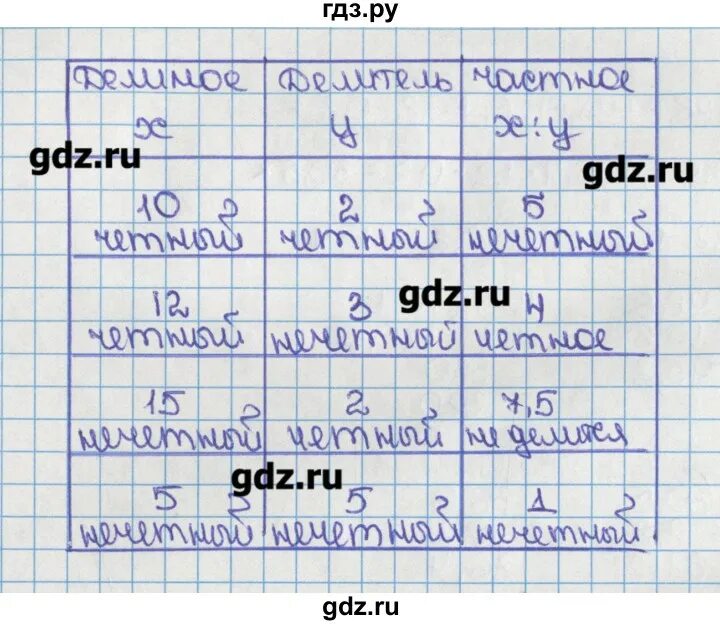 гдз.ру
Делимое Делитель частное
x y x:y
gdz.ru
gdz.ru
10 2 5
четный четный нечетный
12 3 4
gdz.ru
четный нечетный четное
15 2 7,5
нечетный четный не делится
gdz.ru
5 5 1
нечетный нечетный нечетный
gdz.ru